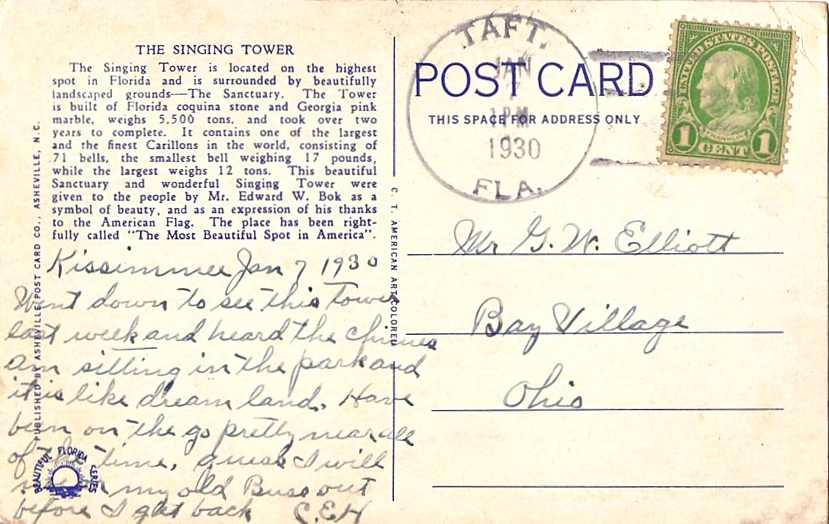 THE SINGING TOWER
The Singing Tower is located on the highest
spot in Florida and is surrounded by beautifully
landscaped grounds—The Sanctuary. The Tower
is built of Florida coquina stone and Georgia pink
marble, weighs 5,500 tons, and took over two
years to complete. It contains one of the largest
and the finest Carillons in the world, consisting of
71 bells, the smallest bell weighing 17 pounds,
while the largest weighs 12 tons. This beautiful
Sanctuary and wonderful Singing Tower were
given to the people by Mr. Edward W. Bok as a
symbol of beauty, and as an expression of his thanks
to the American Flag. The place has been right-
fully called "The Most Beautiful Spot in America".
Kissimmee Jan 7 1930
Went down to see this Tower
last week and heard the chimes
am sitting in the park and
it is like dream land. Have
been on the go pretty near all
of the time, guess I will
my old Buss out
before I get back C.E.H
PUBLISHED BY ASHEVILLE POST CARD CO., ASHEVILLE, N.C.
BEAUTIFUL FLORIDA SERIES
C. T. AMERICAN ART COLORED
TAFT.
JAN
7
1 PM
1930
FLA.
POST CARD
THIS SPACE FOR ADDRESS ONLY
UNITED STATES POSTAGE
FRANKLIN
1 CENT 1
Mr G. W. Elliott
Bay Village
Ohio